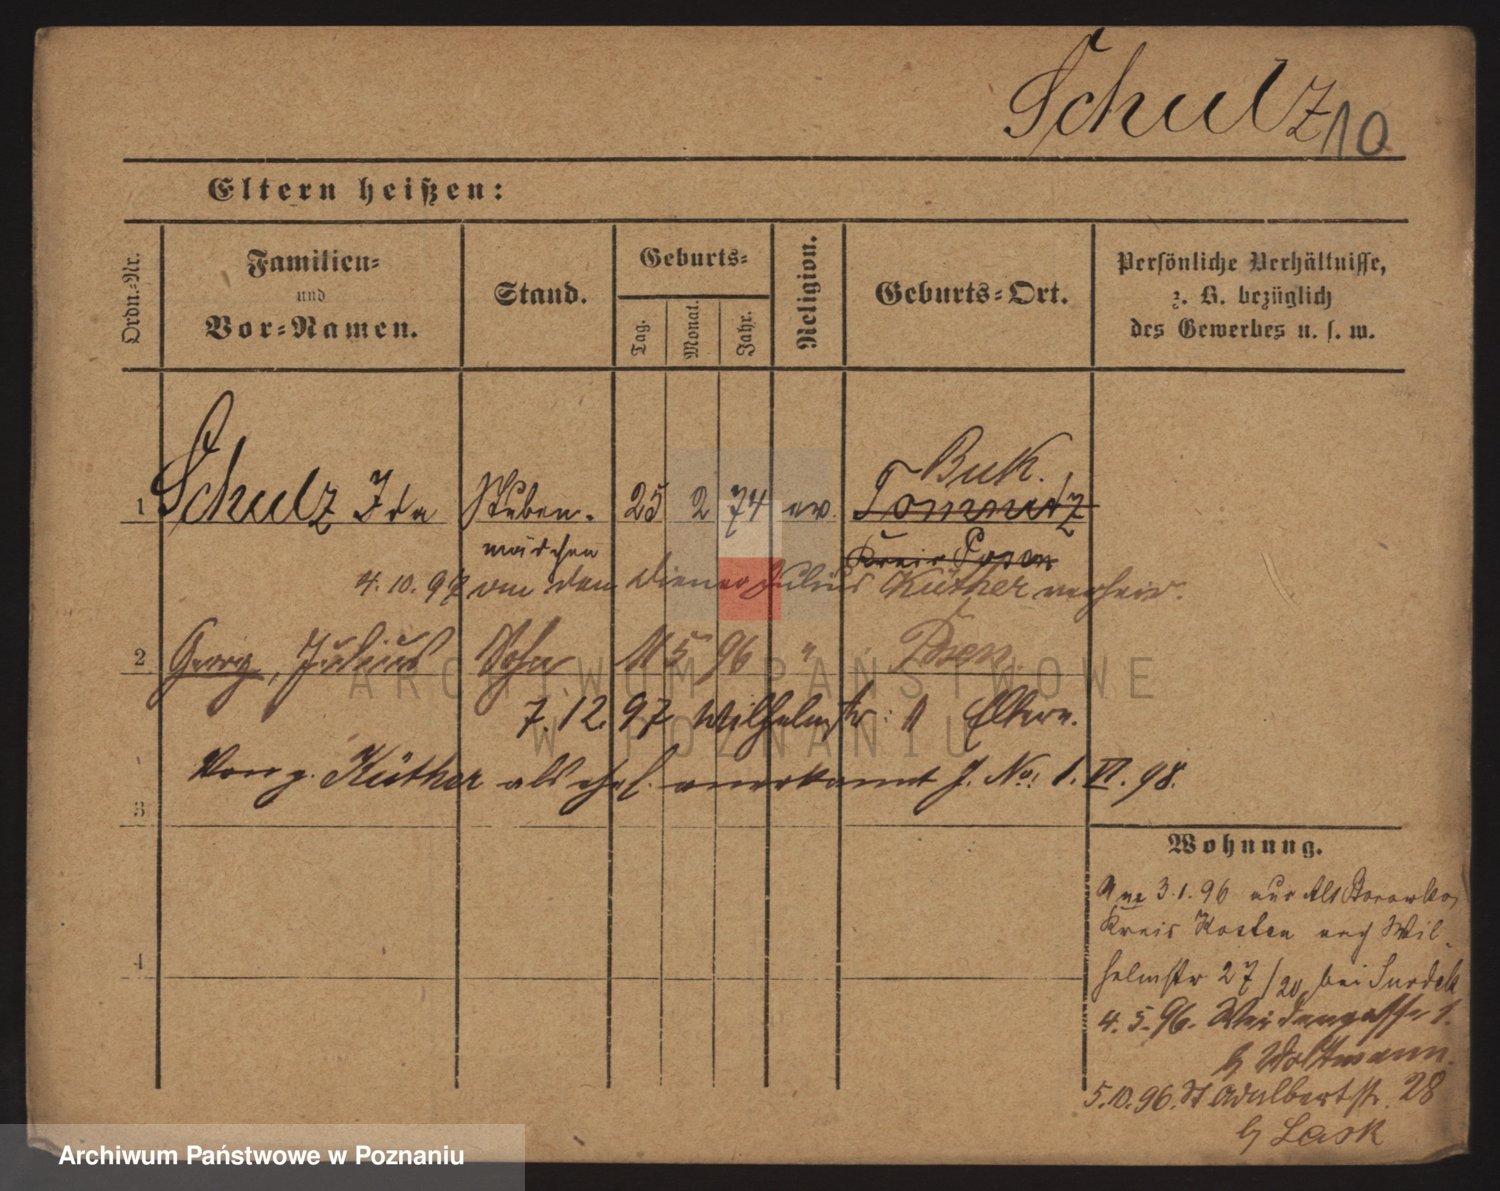 Schulz 10
Eltern heißen:
Ordn.-Nr.
Familien-
und
Vor-Namen.
Stand.
Geburts-
Tag.
Monat.
Jahr.
Religion.
Geburts-Ort.
Persönliche Verhältnisse,
z. B. bezüglich
des Gewerbes u. s. w.
Buk.
1 Schulz Ida Stuben- 25 2 74 ev.
mädchen Kreis Posen
4.10.97 an den Diener Julius Küther verheir.
2 Georg, Julius Sohn 11 5 96 " Posen.
7.12.97 Wilhelmstr: 11 Eltern.
Von g. Küther als ehel. anerkannt J. No: 1. VI. 98.
3
4
Wohnung.
3.1.96 aus Alt
Kreis Kosten nach Wil-
helmstr 27/20 bei
4.5.96. Weidengasse 1.
b Woltmann.
5.10.96. St Adalbertstr. 28
b Lask
ARCHIWUM PAŃSTWOWE
W POZNANIU
Archiwum Państwowe w Poznaniu